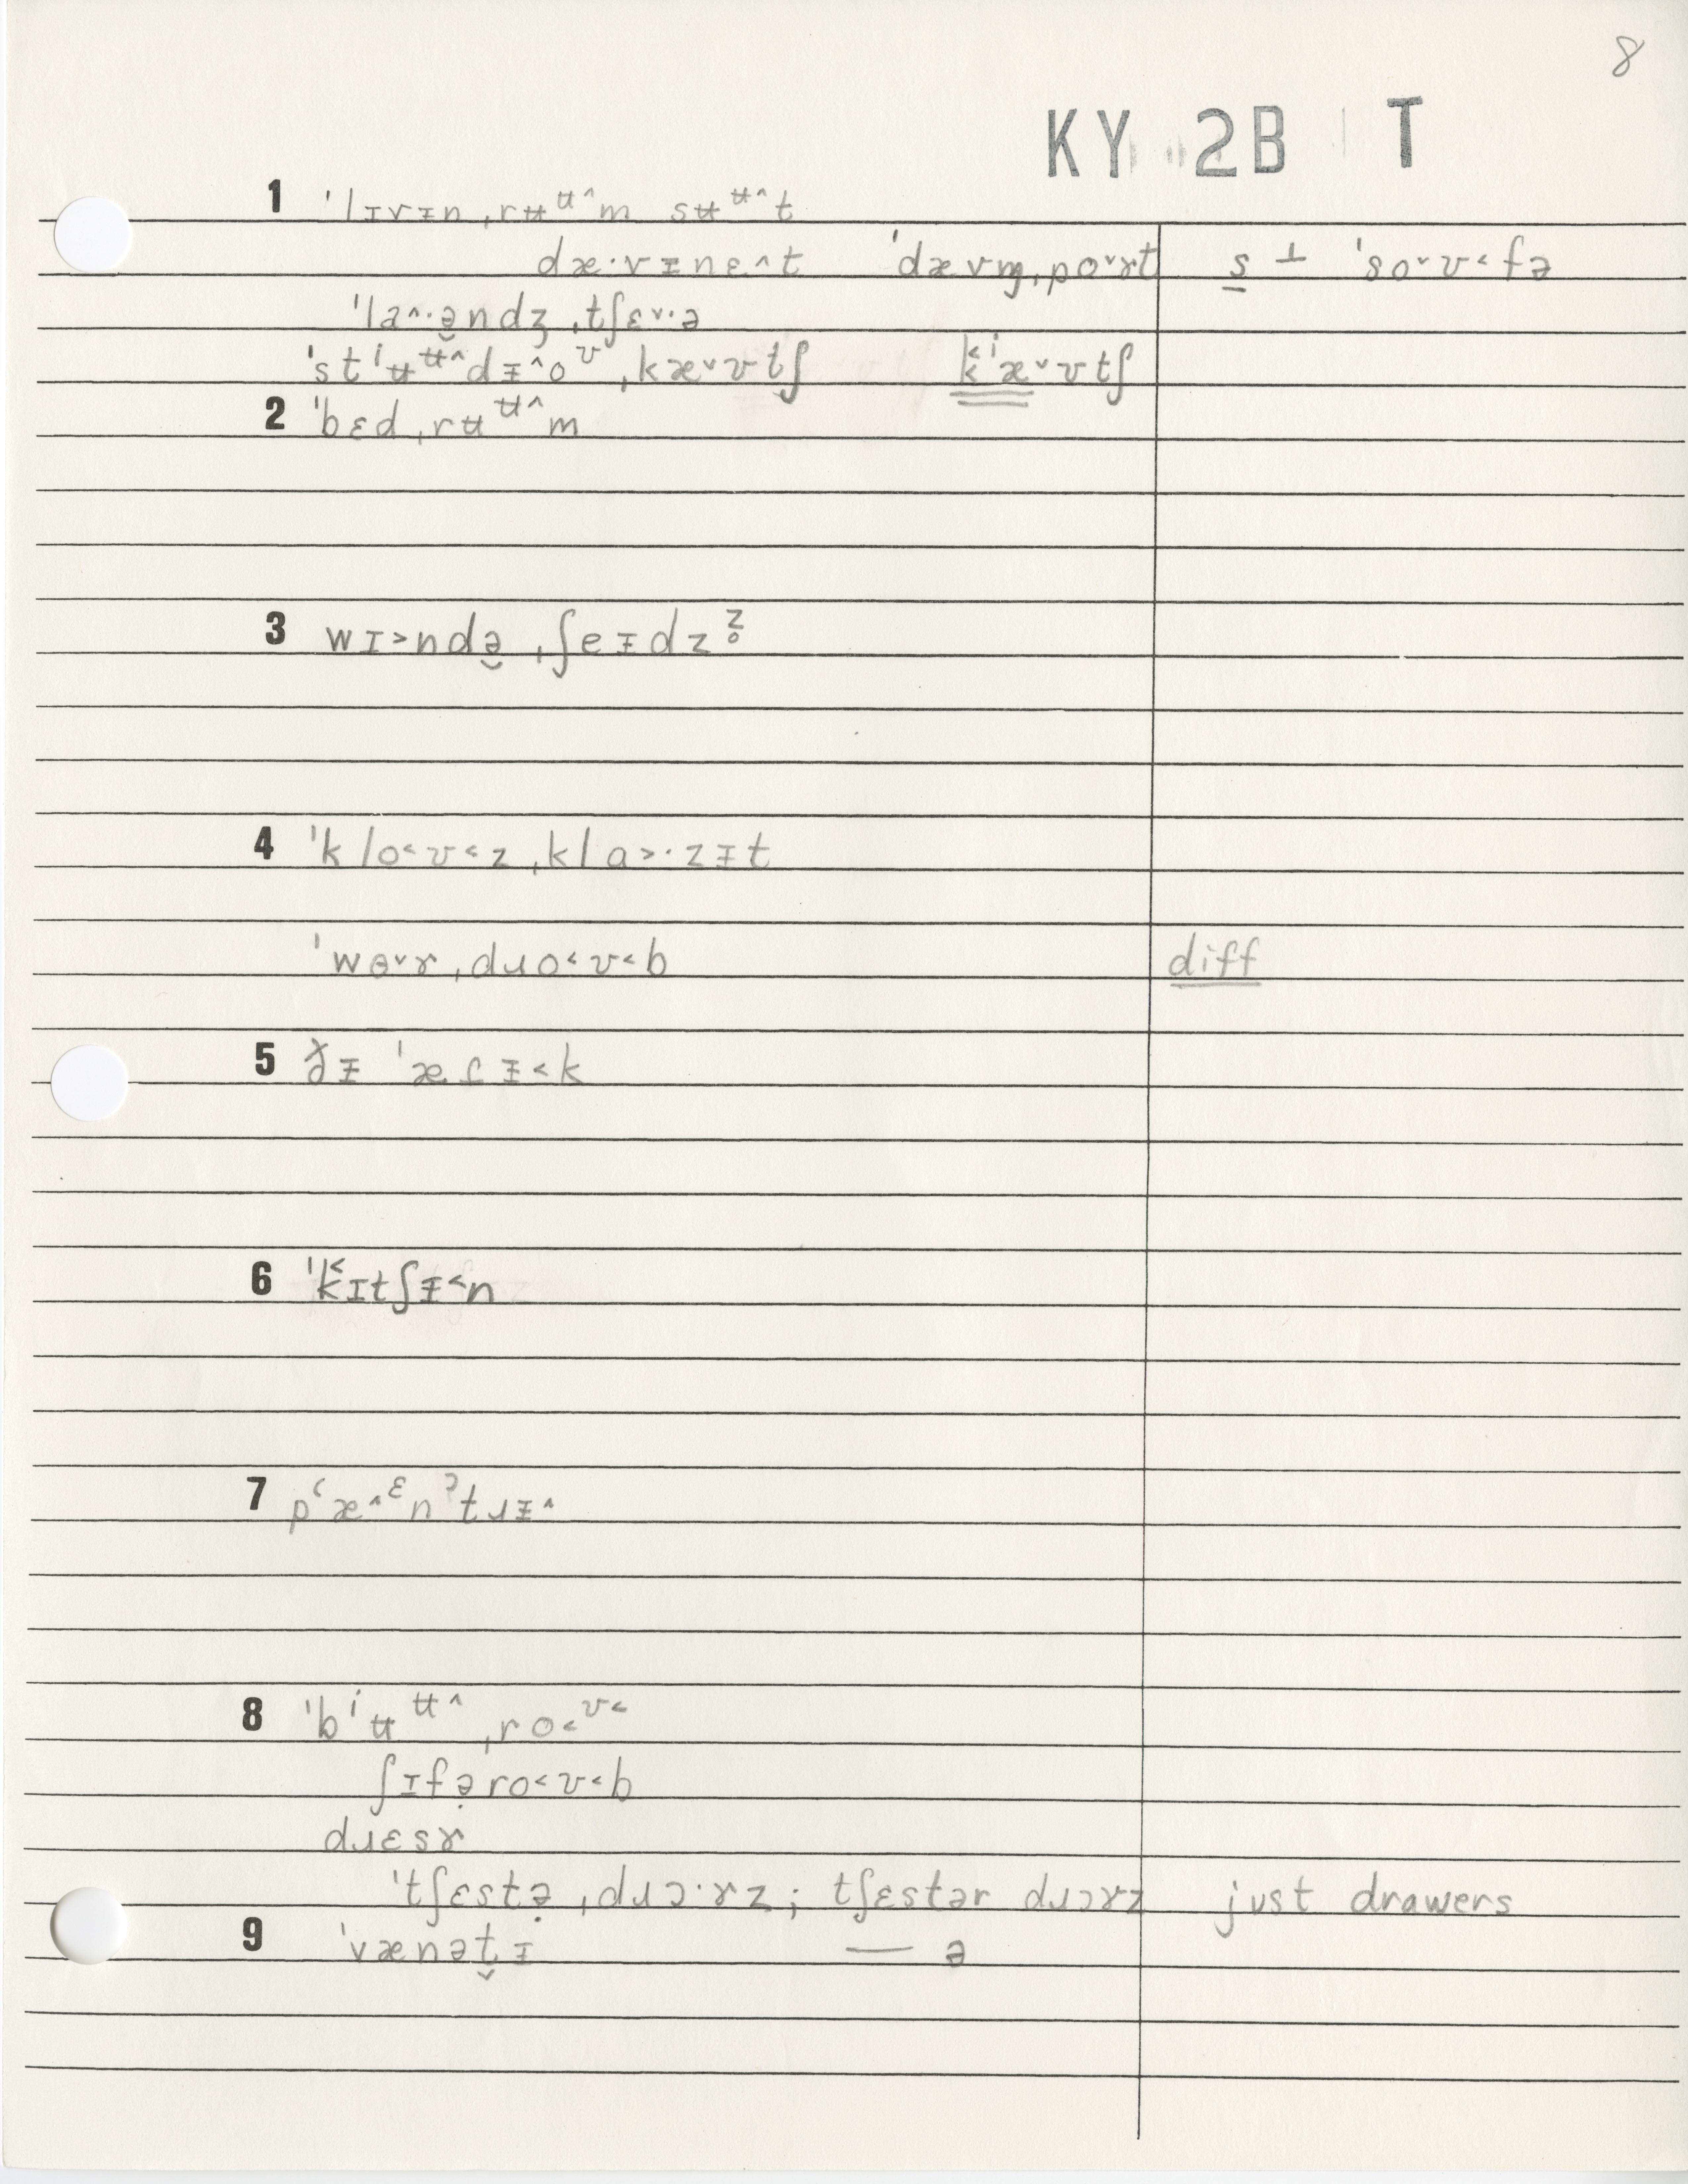 8
KY 2B T
1 ˈlɪvɪ̵n ˌrʉᵿ^m sʉᵿ^t
dæ·vɪ̵nɛ^t ˈdævm̩ˌpoˇɤt s̲ ⊥ ˈsoˇʊ˂fə
ˈla^·ə̯ndʒ ˌtʃɛˇ·ə
ˈstⁱʉᵿ^dɪ̵^oᶷ ˌkæˇʊtʃ k̯˂ⁱæˇʊtʃ
2 ˈbɛd ˌrʉᵿ^m
3 wɪ˃ndə̯ ˌʃeɪ̵dzᶻ̥
4 ˈklo˂ʊ˂z ˌklɑ˃·zɪ̵t
ˈwɵˇɤ ˌdɹo˂ʊ˂b diff
5 ðɪ̵ ˈæɾɪ̵˂k
6 ˈk˂ɪtʃɪ̵˂n
7 pʻæ^ᵋnˀtɹɪ̵^
8 ˈbⁱʉᵿ^ ˌro˂ᶷ˂
ʃɪfə̣ro˂ʊ˂b
dɹɛsɤ
ˈtʃɛstə̣ ˌdɹɔ·ɤz; tʃɛstər dɹɔɤz just drawers
9 ˈvænət̯ɪ̵ — ə